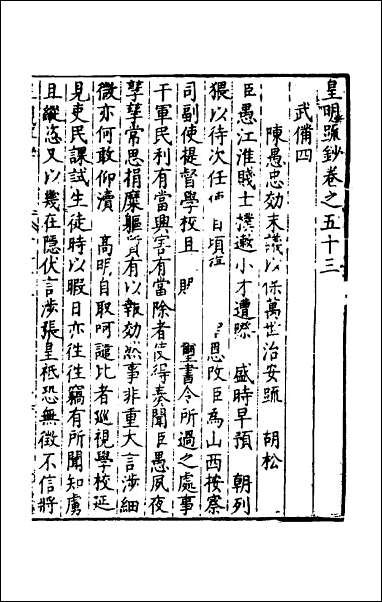 皇明疏鈔卷之五十三
武備四
陳愚忠効末議以保萬世治安疏 胡松
臣愚江淮賤士樸遬小才遭際 盛時早預 朝列
猥以待次任 日頃 恩改臣爲山西按察
司副使提督學校且 聖書令所過之處事
干軍民利有當興害有當除者使得奏聞臣愚夙夜
孳孳常思捐糜軀質有以報効然事非重大言涉細
微亦何敢仰瀆 高明自取呵譴比者巡視學校延
見吏民課試生徒時以暇日亦徃徃竊有所聞知虜
且縱恣又以幾在隱伏言涉張皇祇恐無徵不信將